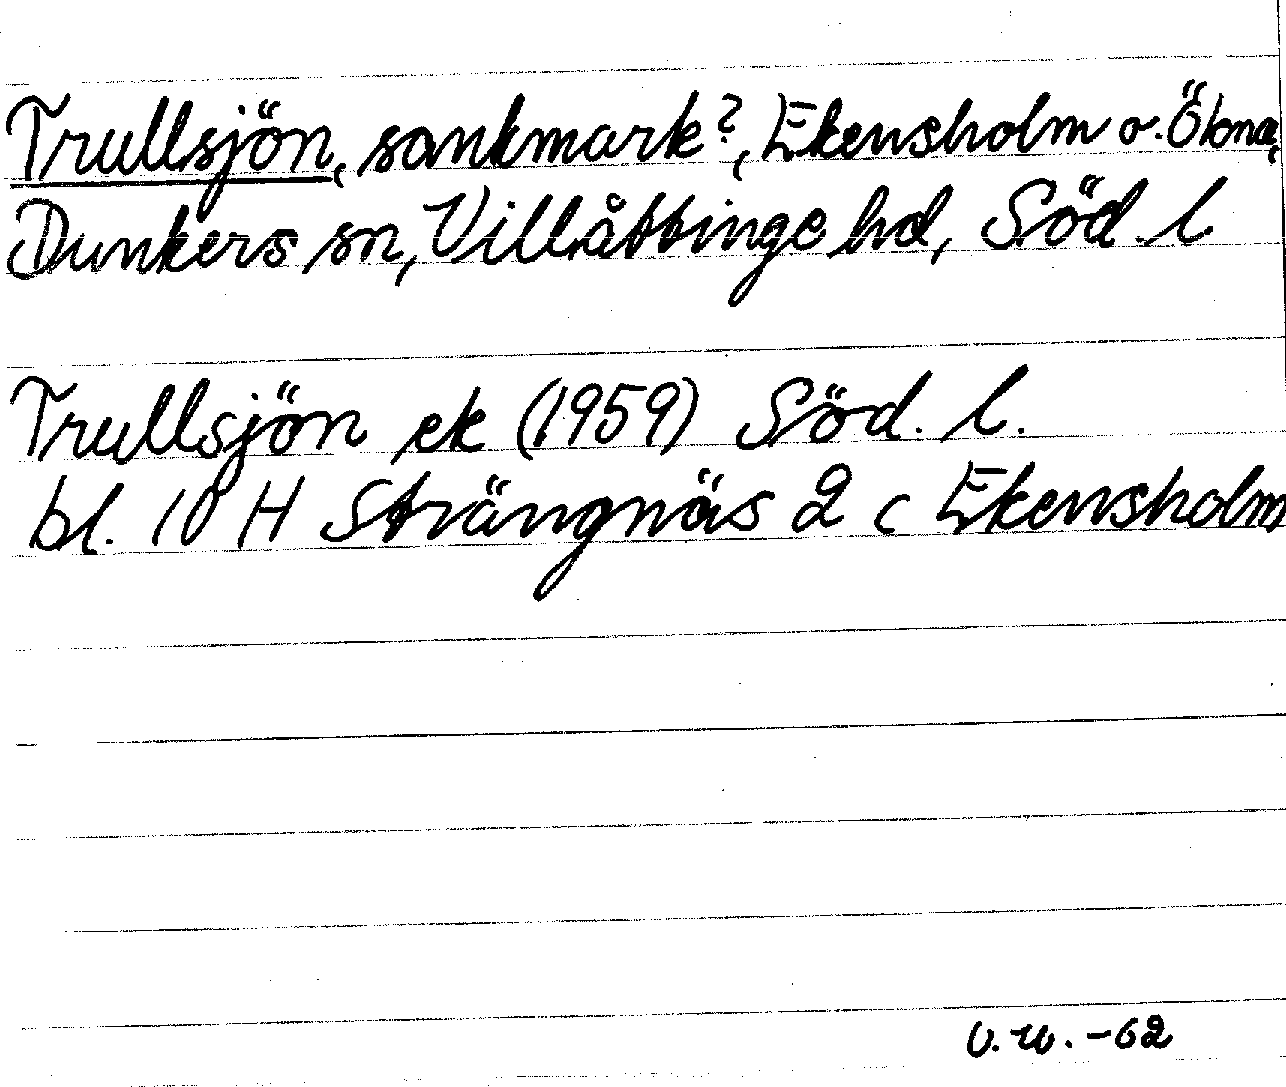 Trullsjön, sankmark?, Ekensholm o. Ökna,
Dunkers sn, Villåttinge hd, Söd. l.
Trullsjön ek (1959) Söd. l.
bl. 10 H Strängnäs 2 c Ekensholm
U.W. -62